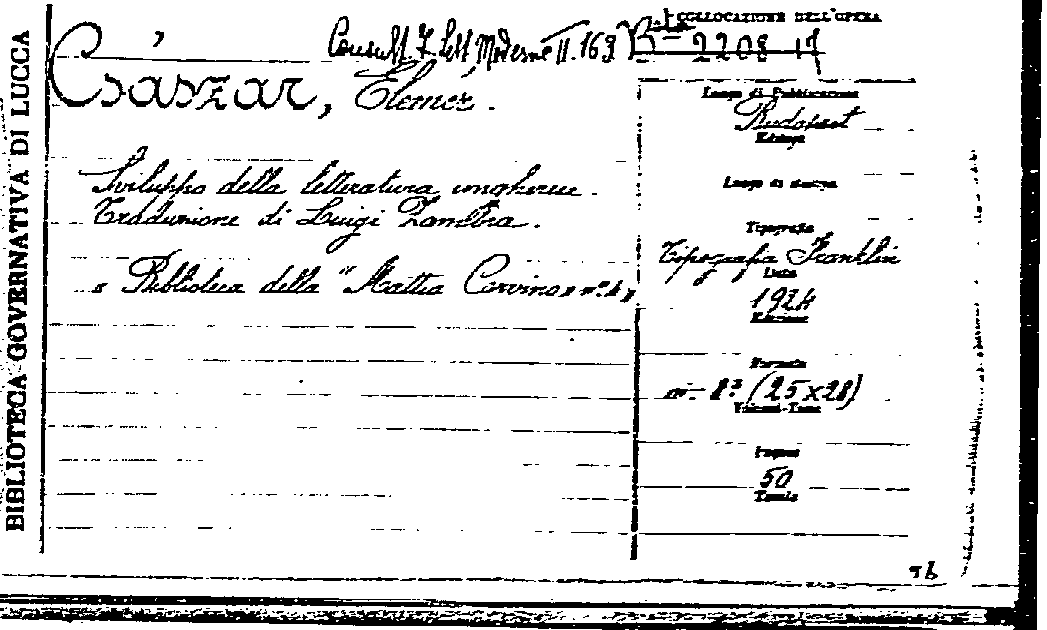 BIBLIOTECA GOVERNATIVA DI LUCCA
COLLOCAZIONE DELL'OPERA
Consult. Z. Lett. Moderne II. 163
2208
Császár, Elemér.
Sviluppo della letteratura ungherese.
Traduzione di Luigi Zambra.
« Biblioteca della "Mattia Corvino" n.° 4 »
Luogo di Pubblicazione
Budapest
Luogo di stampa
Tipografia
Tipografia Franklin
Data
1924
Edizione
Formato
in- 8° (25x28)
Volumi-Tomi
Pagine
50
Tavole